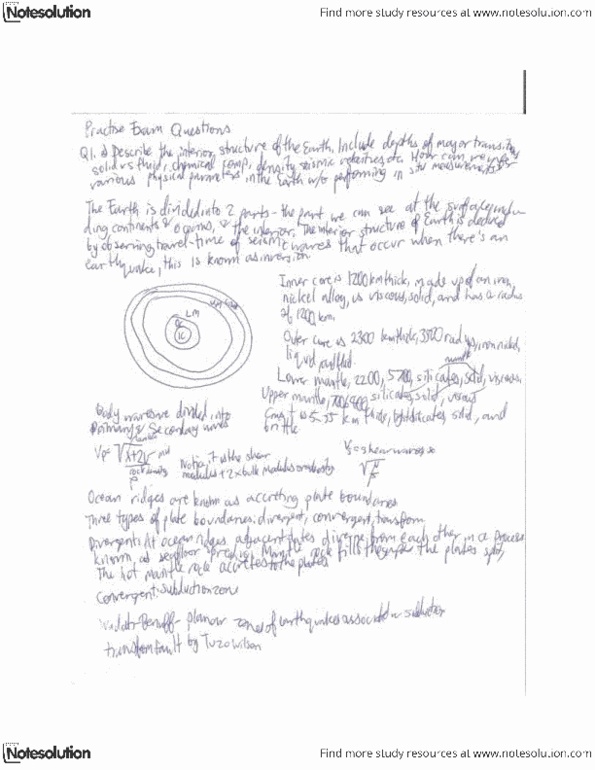 Notesolution
Find more study resources at www.notesolution.com
Practise Exam Questions
Q1. a) Describe the interior structure of the Earth. Include depths of major
solid vs fluid, chemical comp, density, seismic velocities etc. How can we infer
various physical parameters in the Earth w/o performing in situ measurements
The Earth is divided into 2 parts - the part we can see at the surface inclu-
ding continents & oceans, & the interior. The interior structure of Earth is
by observing travel-time of seismic waves that occur when there's an
earthquake, this is known as inversion
Inner core is 1200 km thick, made up of an iron,
nickel alloy, is viscous, solid, and has a radius
of 1200 km.
Outer core is 2300 km thick, 3500 iron nickel,
liquid
mantle
Lower mantle, 2200, 5700, silicates, solid, viscous
Upper mantle, silicates, solid, viscous
Crust is 5-35 km thick, silicates solid, and
brittle
LM
OC
IC
Body waves are divided into
Primary & Secondary waves
Vp= √λ+2
ρ
Note, it is the shear
modulus + 2x bulk modulus
= shear waves
√μ
Ocean ridges are known as accreting plate boundaries
Three types of plate boundaries: divergent, convergent, transform
Divergent: At ocean ridges adjacent plates diverge from each other in a process
known as seafloor spreading. Mantle rock fills the gap the plates
The hot mantle rock accretes to the plates
Convergent: subduction zone
Wadati-Benioff - planar zones of earthquakes associated w subduction
transform fault by Tuzo Wilson
Notesolution
Find more study resources at www.notesolution.com